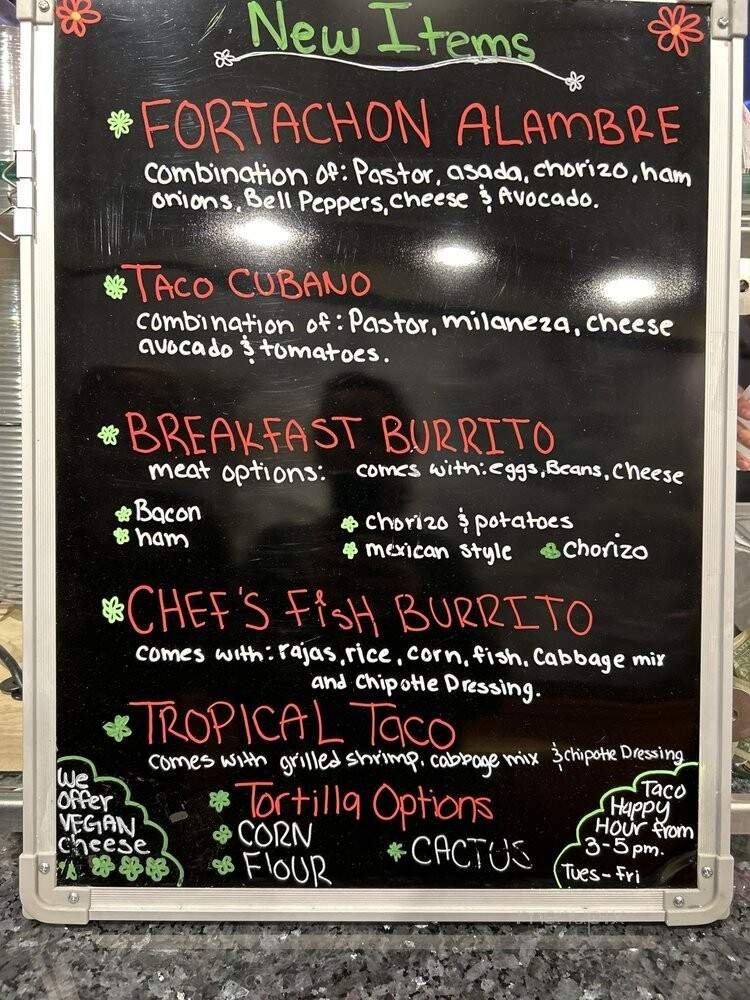 New Items
FORTACHON ALAMBRE
combination of: Pastor, asada, chorizo, ham
onions, Bell Peppers, cheese & Avocado.
TACO CUBANO
combination of: Pastor, milaneza, cheese
avocado & tomatoes.
BREAKFAST BURRITO
meat options: comes with: eggs, Beans, Cheese
Bacon
ham
chorizo & potatoes
mexican style Chorizo
CHEF'S FisH BURRITO
comes with: rajas, rice, corn, fish, Cabbage mix
and Chipotle Dressing.
TROPICAL Taco
comes with grilled shrimp, cabbage mix & chipotle Dressing
We
offer
VEGAN
cheese
Tortilla Options
CORN
FlOUR
CACTUS
Taco
Happy
Hour from
3-5 pm.
Tues-Fri